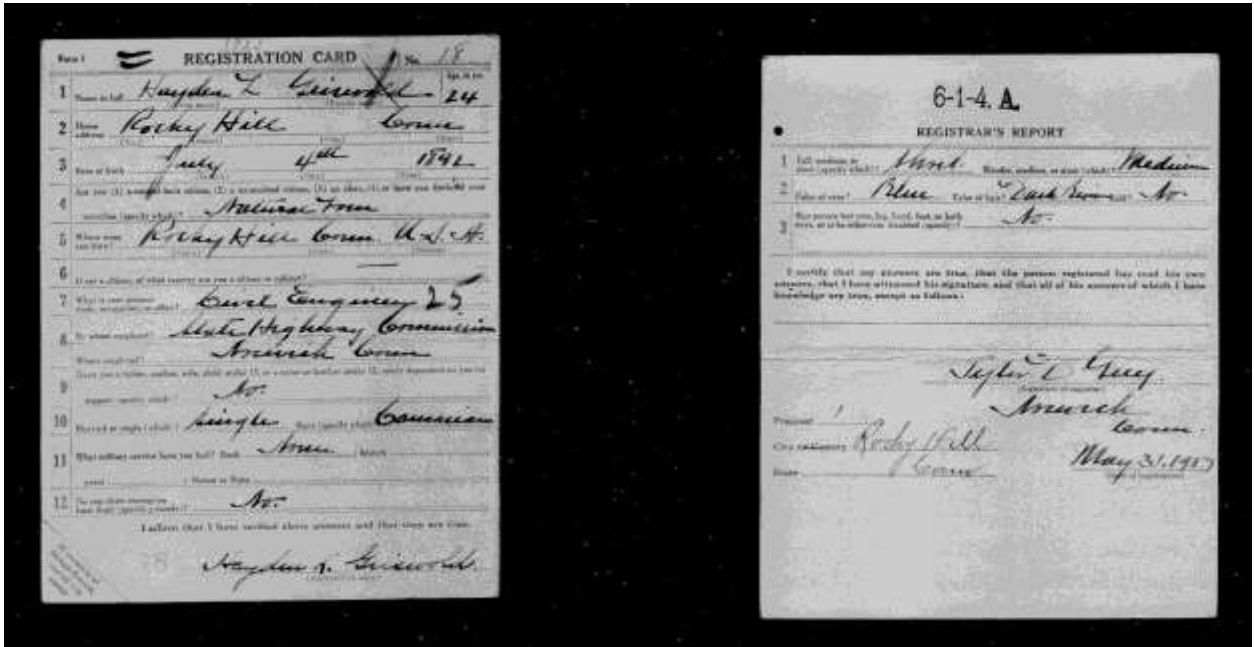 Form 1 REGISTRATION CARD No. 18
1 Name in full Hayden L Griswold Age, in yrs. 24
2 Home address Rocky Hill Conn
3 Date of birth July 4th 1892
4 Are you (1) a natural-born citizen, (2) a naturalized citizen, (3) an alien, (4) or have you declared your
intention (specify which)?
5 Where were you born? Rocky Hill Conn. U.S.A.
6 If not a citizen, of what country are you a citizen or subject?
7 What is your present trade, occupation, or office? Civil Engineer 25
8 By whom employed? State Highway Commission
Where employed? Norwich Conn
9 Have you a father, mother, wife, child under 12, or a sister or brother under 12, solely dependent on you for
support (specify which)? No.
10 Married or single (which)? Single Race (specify which)?
11 What military service have you had? Rank None branch
years Nation or State
12 Do you claim exemption from draft (specify grounds)? No.
I affirm that I have verified above answers and that they are true.
78
Hayden L. Griswold.
6-1-4. A.
REGISTRAR'S REPORT
1 Tall, medium, or short (specify which)? Short Slender, medium, or stout (which)? Medium
2 Color of eyes? Blue Color of hair? Dark Brown Bald? No.
3 Has person lost arm, leg, hand, foot, or both eyes, or is he otherwise disabled (specify)? No.
I certify that my answers are true, that the person registered has read his own
answers, that I have witnessed his signature, and that all of his answers of which I have
knowledge are true, except as follows:
(Signature of registrar)
Norwich
Conn.
Precinct 1
City or County Rocky Hill
State Conn
May 31. 1917
(Date of registration)